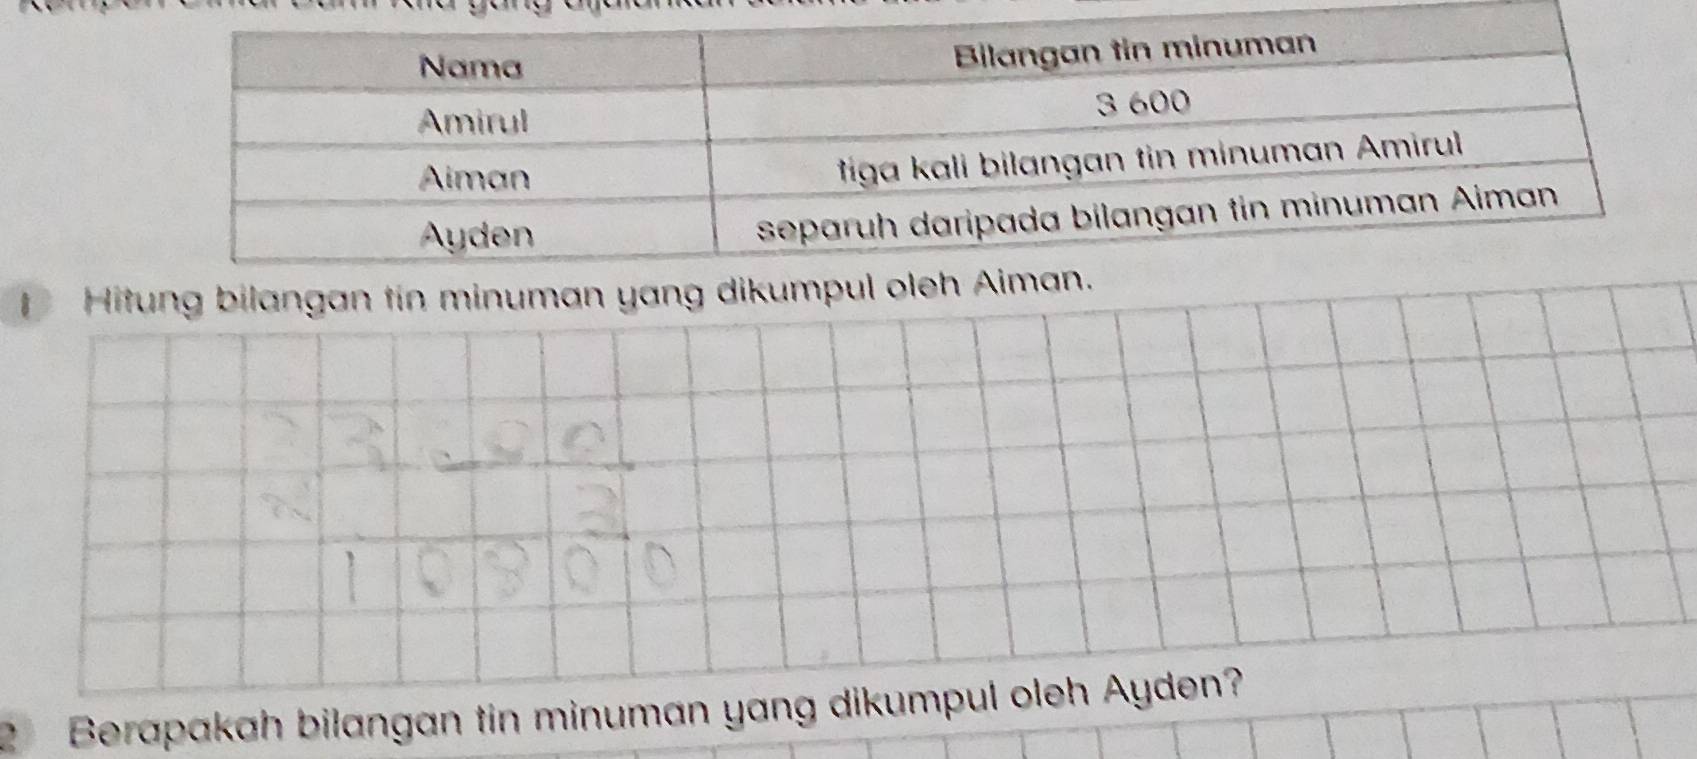 Nama Bilangan tin minuman
Amirul 3 600
Aiman tiga kali bilangan tin minuman Amirul
Ayden separuh daripada bilangan tin minuman Aiman
1 Hitung bilangan tin minuman yang dikumpul oleh Aiman.
3
1 0 8 0 0
2 Berapakah bilangan tin minuman yang dikumpul oleh Ayden?